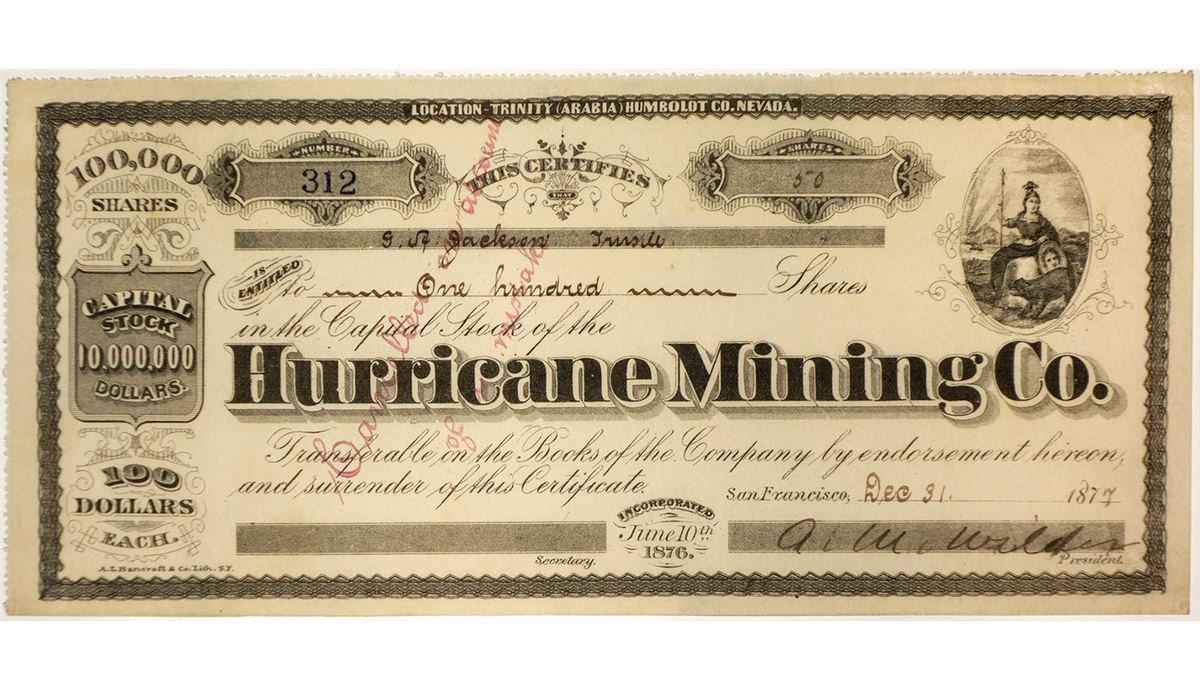 LOCATION-TRINITY (ARABIA) HUMBOLDT CO. NEVADA.
100,000
SHARES
NUMBER
312
THIS CERTIFIES
THAT
SHARES
50
Jackson Trustee
IS
ENTITLED
to One hundred Shares
in the Capital Stock of the
CAPITAL
STOCK
10,000,000
DOLLARS.
Hurricane Mining Co.
Transferable on the Books of the Company by endorsement hereon,
and surrender of this Certificate.
San Francisco, Dec 31. 1877
100
DOLLARS
EACH.
INCORPORATED
June 10th
1876.
A. M. Wilder
Secretary.
President.
A.L. Bancroft & Co. Lith. S.F.
Cancelled on account
of mistake